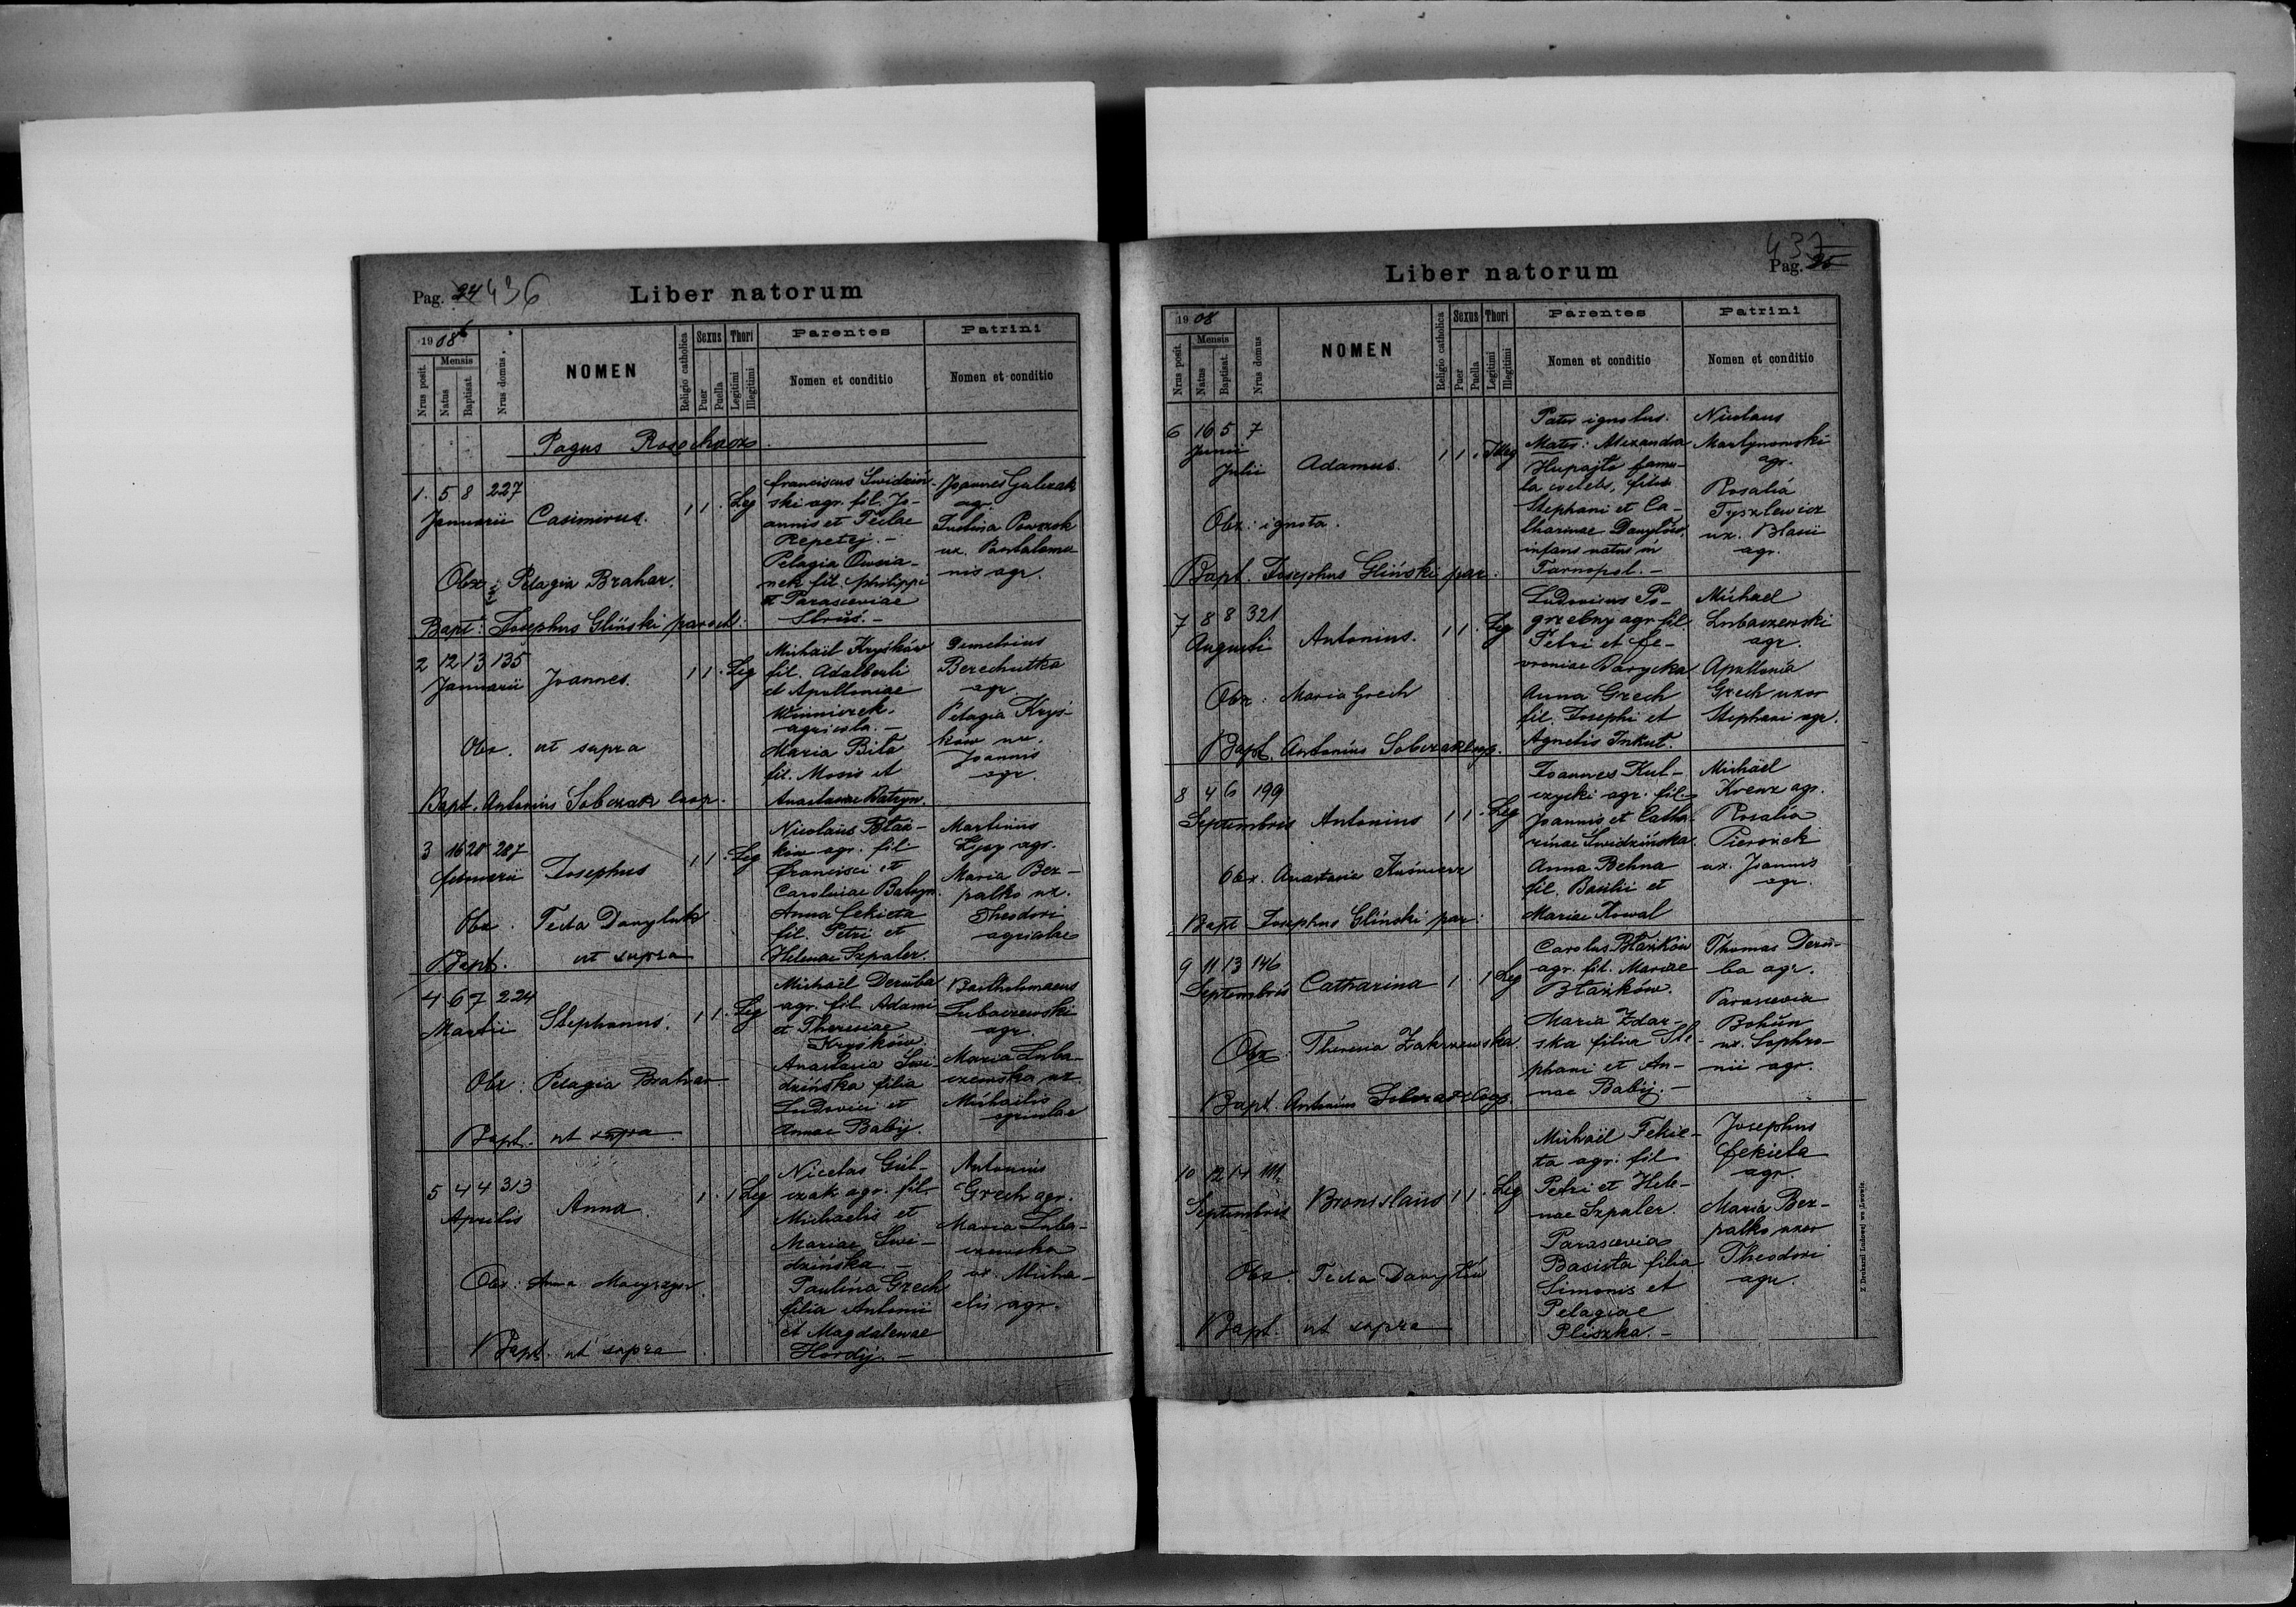 Pag. 24 436
Liber natorum
1908
Nrus posit.
Mensis
Natus
Baptisat.
Nrus domus
NOMEN
Religio catholica
Sexus
Puer
Puella
Thori
Legitimi
Illegitimi
Parentes
Nomen et conditio
Patrini
Nomen et conditio
Pagus Rosochacz
1. 5 8 227
Januarii Casimirus. 1 1 . Leg
Obx: Pelagia Brahar.
Bapt: Josephus Gliński paroch:
Franciscus Świdziń-
ski agr. fil. Jo-
annis et Teclae
Repetej. -
Pelagia Owsia-
nek fil. Philippi
et Parasceviae
Struś. -
Joannes Gulczak
agr.
ux. Bartolome
nis agr.
2 12 13 135
Januarii Joannes. 1 1 . Leg
Obx. ut supra
Bapt. Antonius Sobczak coop.
Michael Kryśków
fil. Adalberti
et Apolloniae
Winniczek.
agricola. -
Maria Biła
fil. Mosis et
Anastasiae Batryn.
Demetrius
Berehutka
agr.
Pelagia Kryś-
ków ux.
Joannis
agr.
3 16 20 287
februarii Josephus 1 1 . Leg
Obx. Tecla Danyluk
Bapt. ut supra
Nicolaus Błaż-
ków agr. fil
Francisci et
Carolinae Batryn.
Anna Fekieta
fil. Petri et
Helenae Szpaler.
Martinus
Łysy agr.
Maria Bez-
palko ux.
Theodori
agricolae
4 6 7 224
Martii Stephanus. 1 1 . Leg
Obx: Pelagia Brahar
Bapt. ut supra
Michaël Deruba
agr. fil. Adami
et Theresiae
Kryśków.
Anastasia Świ-
dzińska filia
Ludovici et
Annae Babij.
Bartholomaeus
Lubaczewski
agr.
Maria Luba-
czewska ux.
Michaelis
agricolae
5 4 4 313
Aprilis Anna 1 . 1 Leg
Obx: Anna
Bapt. ut supra
Nicetas Gul-
czak agr. fil.
Michaelis et
Mariae Świ-
dzińska -
Paulina Grech
filia Antonii
et Magdalenae
Hordij. -
Antonius
Grech agr.
Maria Luba-
czewska
ux. Micha-
elis agr.
437
Pag. 25
Liber natorum
1908
Nrus posit.
Mensis
Natus
Baptisat.
Nrus domus
NOMEN
Religio catholica
Sexus
Puer
Puella
Thori
Legitimi
Illegitimi
Parentes
Nomen et conditio
Patrini
Nomen et conditio
6 16 5 7
Junii
Julii Adamus. 1 1 . Illeg
Obx: ignota.
Bapt. Josephus Gliński par:
Pater ignotus.
Mater: Alexandra
Hupajło famu-
la coelebs, filia
Stephani et Ca-
tharinae Danyłów,
infans natus in
Tarnopol. -
Nicolaus
Martynowski
agr.
Rosalia
Tyszkewicz
ux. Blasii
agr.
7 8 8 321
Augusti Antonius. 1 1 . Leg
Obx: Maria Grech
Bapt. Antonius Sobczak coop.
Ludovicus Po-
grzebny agr. fil.
Petri et Fe-
vroniae Darycka
Anna Grech
fil. Josephi et
Agnetis Inkut.
Michael
Lubaczewski
agr.
Apollonia
Grech uxor
Stephani agr.
8 4 6 199
Septembris Antonius 1 1 . Leg
Obx. Anastasia Kuśnierz
Bapt Josephus Gliński par:
Joannes Kul-
czycki agr. fil.
Joannis et Catha-
rinae Świdzińska.
Anna Behna
fil. Basilii et
Mariae Kowal
Michaël
Krenz agr.
Rosalia
ux. Joannis
agr.
9 11 13 146
Septembris Catharina 1 . 1 Leg
Obx: Theresia Zakrzewska.
Bapt. Antonius Sobczak Coop.
Carolus Błażków
agr. fil. Mariae
Błażków.
Maria Zdar-
ska filia Ste-
phani et An-
nae Babij. -
Thomas Deru-
ba agr.
Parascevia
Bohun
ux. Sophro-
nii agr.
10 12 14 111
Septembris Bronislaus 1 1 . Leg
Obx: Tecla Danyłów
Bapt. ut supra
Michaël Fekie-
ta agr. fil
Petri et Hele-
nae Szpaler.
Parascevia
Basista filia
Simonis et
Pelagiae
Pliszka. -
Josephus
Fekieta
agr.
Maria Bez-
palko uxor
Theodori
agr.
Z Drukarni Ludowej we Lwowie.